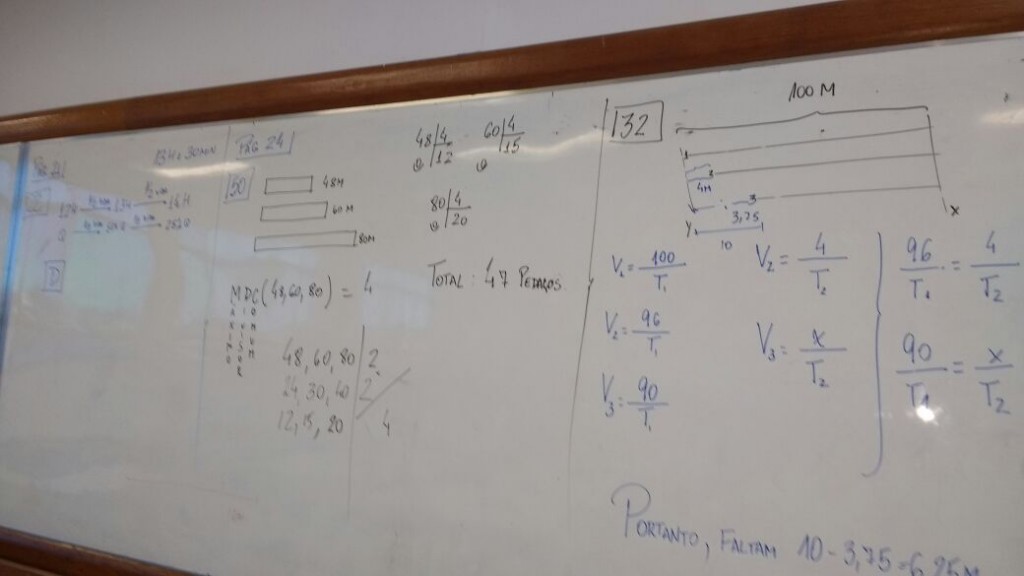 13H e 30MIN
D
PÁG 24
50
48M
60M
80M
MDC (48,60,80) = 4
MÁXIMO
DIVISOR
COMUM
48, 60, 80 | 2
24, 30, 40 | 2
12, 15, 20 | 4
48 | 4
0 | 12
60 | 4
0 | 15
80 | 4
0 | 20
TOTAL: 47 PEDAÇOS.
132
100 M
4M
3
3,75
10
Y
X
V₁ = 100/T₁
V₂ = 96/T₁
V₃ = 90/T₁
V₂ = 4/T₂
V₃ = x/T₂
96/T₁ = 4/T₂
90/T₁ = x/T₂
PORTANTO, FALTAM 10 - 3,75 = 6,25M